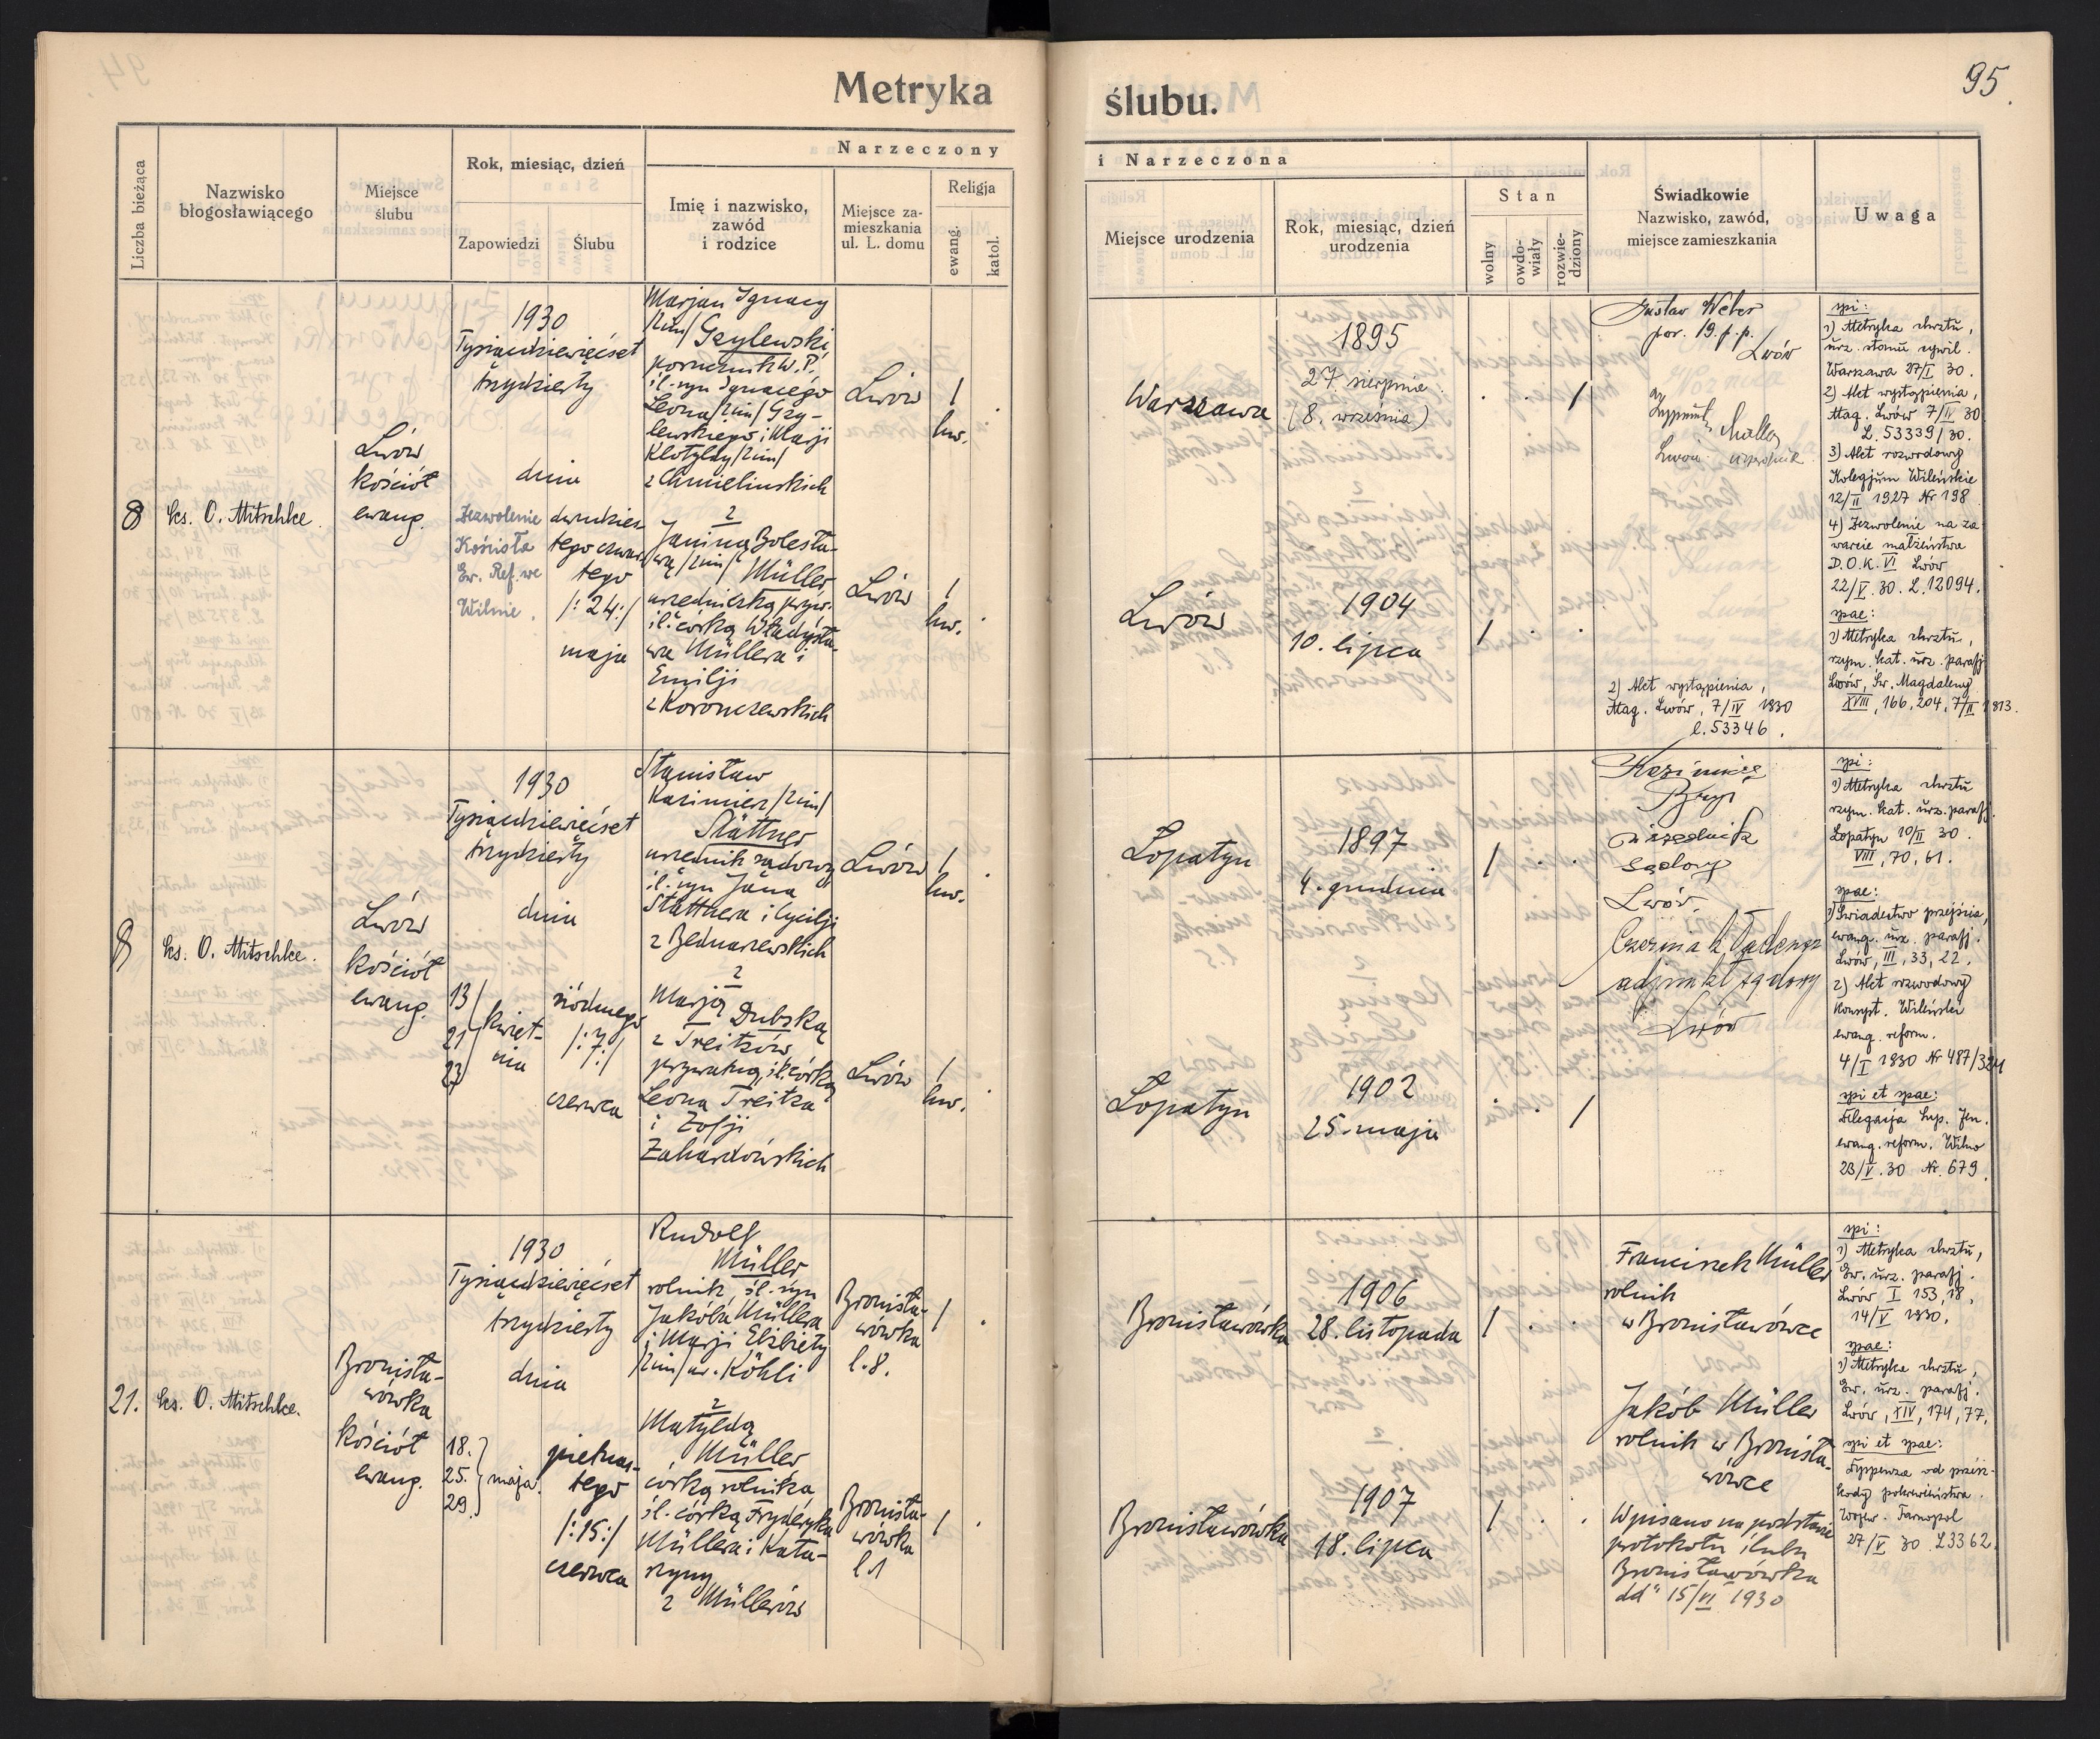 Metryka
ślubu.
95.
Narzeczony
i Narzeczona
Liczba bieżąca
Nazwisko
błogosławiącego
Miejsce
ślubu
Rok, miesiąc, dzień
Zapowiedzi
Ślubu
Imię i nazwisko,
zawód
i rodzice
Miejsce za-
mieszkania
ul. L. domu
Religja
ewang.
katol.
Miejsce urodzenia
Rok, miesiąc, dzień
urodzenia
Stan
wolny
owdo-
wiały
rozwie-
dziony
Świadkowie
Nazwisko, zawód,
miejsce zamieszkania
Uwaga
8
ks. O. Mitschke.
Lwów
kościół
ewang.
1930
Tysiącdziewięćset
trzydziesty
dnia
Zezwolenie
Kościoła
Ew. Ref. we
Wilnie.
dwudzies-
tego czwar
tego
/:24:/
maja
Marjan Ignacy
/2im/ Gzylewski
porucznik W.P.
śl. syn Ignacego
Leona /2im/ Gzy-
lewskiego i Marji
Klotyldy /2im/
z Chmielinskich
z
Janiną Bolesła-
wą /2im/ Müller
urzedniczką pryw.
śl. córką Władysła-
wa Müllera i
Emilji
z Koronczewskich
Lwów
1
hw.
Lwów
1
hw.
Warszawa
1895
27 sierpnia
(8. września)
1
Lwów
1904
10. lipca
1
Gustav Weber
por. 19. p.p.
Lwów
Lwów
2) Akt wystąpienia,
Mag. Lwów, 7/IV 1930
l. 53346.
spi:
1) Metryka chrztu,
urz. stanu cywil.
Warszawa 27/I 30.
2) Akt wystąpienia,
Mag. Lwów 7/IV 30
L. 53339/30.
3) Akt rozwodowy
Kolegjum Wileńskie
12/II 1927 Nr 198
4) Zezwolenie na za
warcie małżeństwa
D.O.K. VI Lwów
22/V. 30. L. 12094.
spae:
1) Metryka chrztu,
rzym. kat. urz. parafj
Lwów, Św. Magdaleny
XVIII, 166, 204, 7/II 1913.
ks. O. Mitschke.
Lwów
kościół
ewang.
1930
Tysiącdziewięćset
trzydziesty
dnia
13
21
27
kwiet-
nia
siódmego
/:7:/
czerwca
Stanisław
Kazimierz /2im/
Stättner
urzednik sądowy
śl. syn Jana
Stättnera i Cycilji
z Bednarzewskich
z
Marją
Dubską
z Treitzów
prywatną, śl. córką
Leona Treitza
i Zofji
Zakardówskich
Lwów
1
hw.
Lwów
1
hw.
Lopatyn
1897
4. grudnia
1
Lopatyn
1902
25. maja
1
Kazimierz
urzędnik
sądowy
Lwów.
Tadeusz
adjunkt sądowy
Lwów
spi:
1) Metryka chrztu
rzym. kat. urz. parafj.
Lopatyn 10/II 30.
VIII, 70, 61.
spae:
1) Świadectwo przejścia,
ewang. urz. parafj.
Lwów, III, 33, 22.
2) Akt rozwodowy
Konsyst. Wileński
ewang. reform.
4/I 1930 Nr 487/324
spi et spae:
Delegacja Sup. Jen.
ewang. reform. Wilno
23/V. 30 Nr. 679.
21.
ks. O. Mitschke.
Bronisła-
wówka
kościół
ewang.
1930
Tysiącdziewięćset
trzydziesty
dnia
18.
25.
29.
maja.
pietnas-
tego
/:15:/
czerwca
Rudolf
Müller
rolnik, śl. syn
Jakóba Müllera
i Marji Elżbiety
/2im/ ur. Köhli
z
Matyldą
Müller
córką rolnika
śl. córką Fryderyka
Müllera i Kata-
rzyny
z Müllerów
Bronisła-
wówka
l. 8.
1
Bronisła-
wówka
l 1
1
Bronisławówka
1906
28. listopada
1
Bronisławówka
1907
18. lipca
1
Franciszek Müller
rolnik
w Bronisławówce
Jakób Müller
rolnik w Bronisła-
wówce
Wpisano na podstawie
protokołu ślubu
Bronisławówka
dd° 15/VI 1930
spi:
1) Metryka chrztu,
Ew. urz. parafj.
Lwów I 153, 18,
14/V 1930.
spae:
1) Metryka chrztu,
Ew. urz. parafj.
Lwów, XIV, 174, 77,
spi et spae:
Dyspensa od przesz-
kody pokrewieństwa.
Wojew. Tarnopol
27/V 30 L3362.